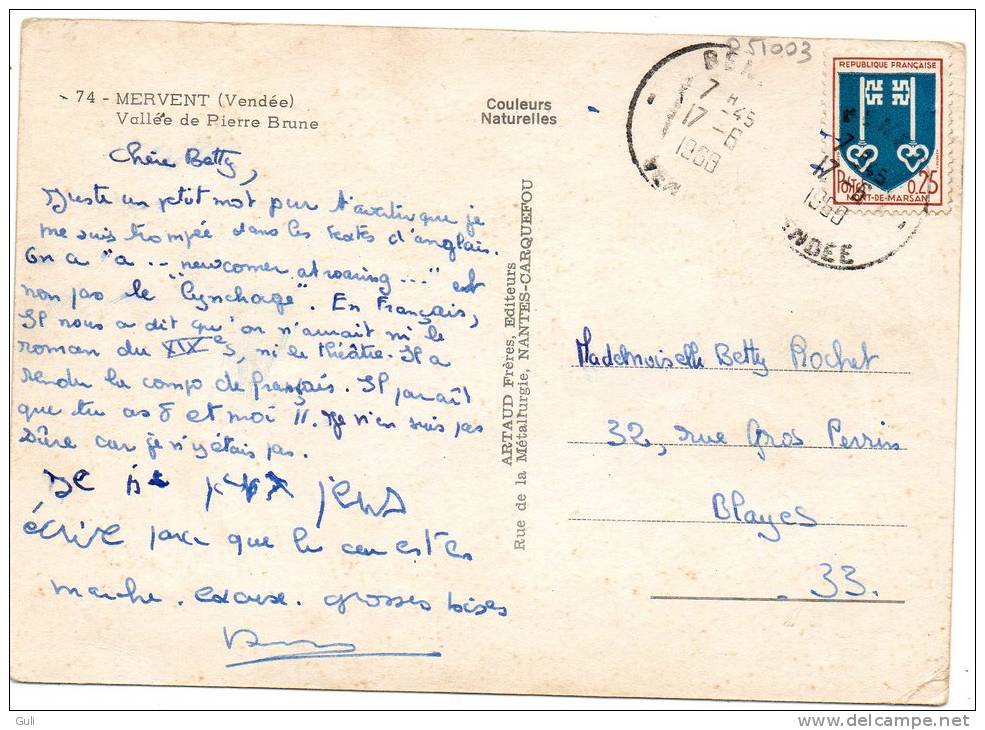 74 - MERVENT (Vendée)
Vallée de Pierre Brune
Couleurs
Naturelles
051003
7 H -45
17 -6
REPUBLIQUE FRANÇAISE
POSTES 0.25
MONT-DE-MARSAN
7 H 45
17 -6
ENDEE
Chère Betty,
Juste un petit mot pour t'avertir que je
me suis trompée dans les textes d'anglais.
On a "a .. newcomer at roaring ..." et
non pas le "lynchage". En Français,
Il nous a dit qu'on n'aurait ni le
roman du XIXe s, ni le théâtre. Il a
rendu la compo de français. Il paraît
que tu as 8 et moi 11. Je n'en suis pas
sûre car je n'y étais pas.
Je
écrire parce que le car est en
marche. excuse. grosses bises
ARTAUD Frères, Editeurs
Rue de la Métallurgie, NANTES-CARQUEFOU
Mademoiselle Betty Rochet
32, rue Gros Perrin
Blayes
33.
Guli
www.delcampe.net